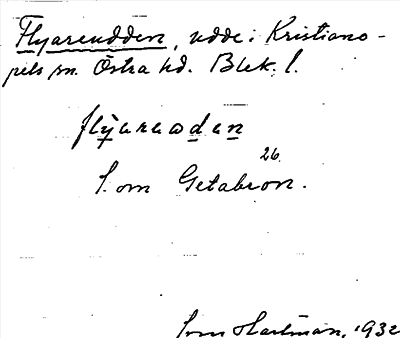 Flyareudden, udde i Kristiano-
pels sn. Östra hd. Blek. l.
flyarеωdеn
26
S. om Getabron.
Sven Hartman, 1932